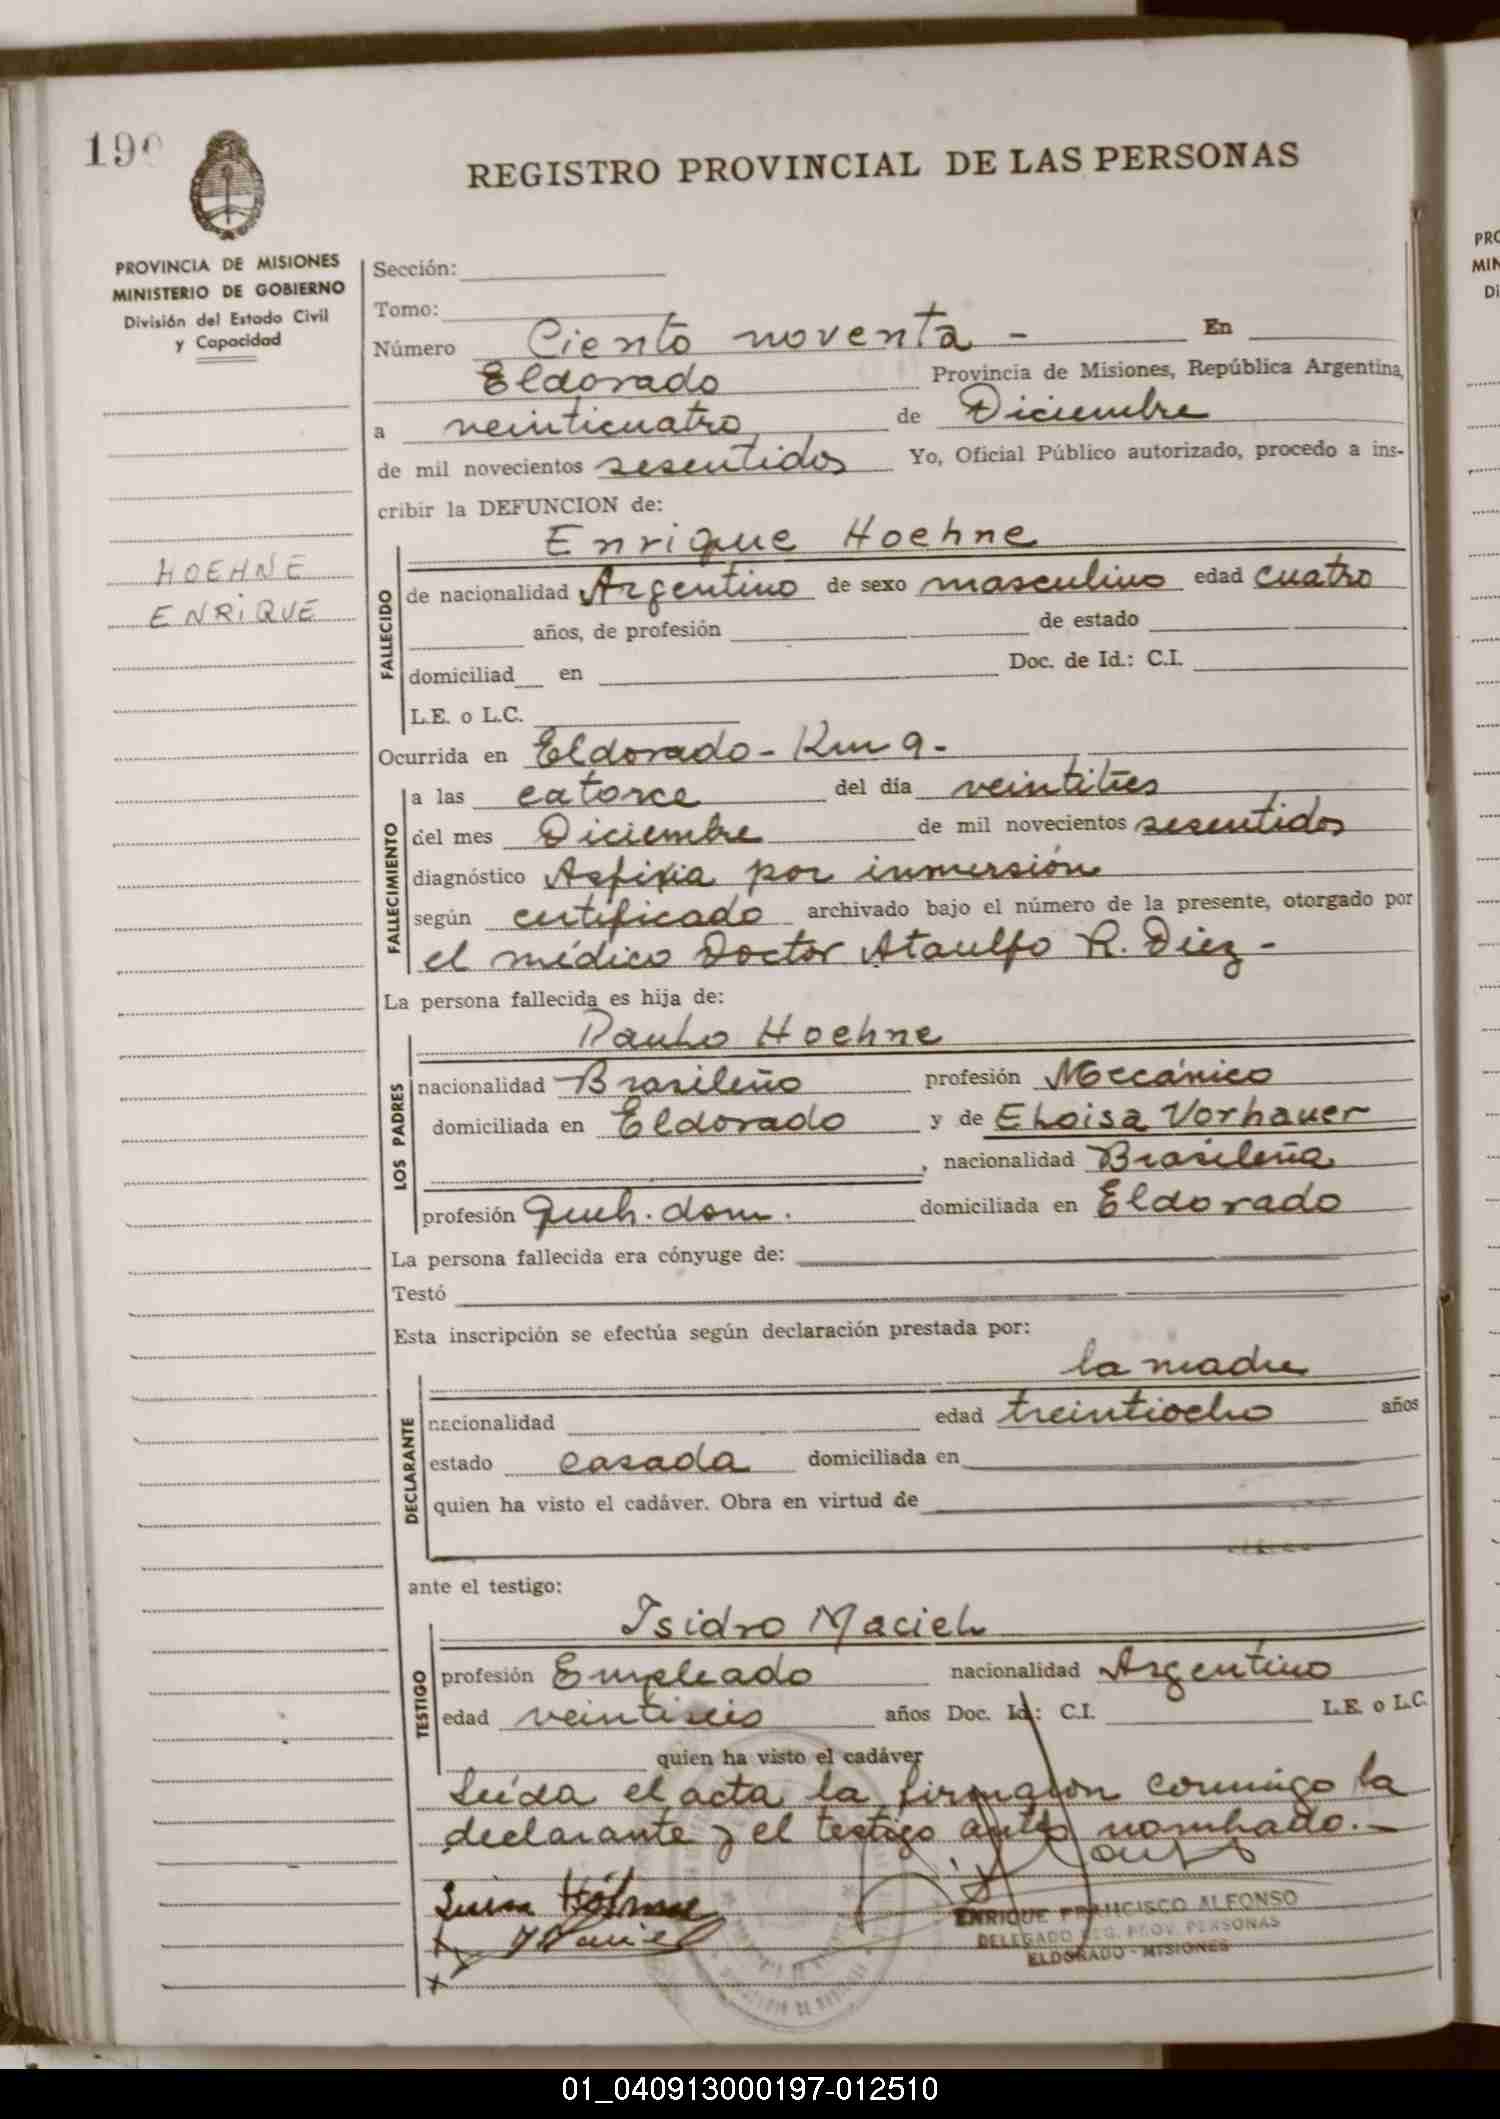 190
REGISTRO PROVINCIAL DE LAS PERSONAS
PROVINCIA DE MISIONES
MINISTERIO DE GOBIERNO
División del Estado Civil
y Capacidad
HOEHNE
ENRIQUE
Sección:
Tomo:
Número Ciento noventa - En
Eldorado Provincia de Misiones, República Argentina,
a veinticuatro de Diciembre
de mil novecientos sesentidos Yo, Oficial Público autorizado, procedo a ins-
cribir la DEFUNCION de:
Enrique Hoehne
FALLECIDO
de nacionalidad Argentino de sexo masculino edad cuatro
años, de profesión de estado
domiciliad en Doc. de Id.: C.I.
L.E. o L.C.
Ocurrida en Eldorado - Km 9 -
FALLECIMIENTO
a las catorce del día veintitres
del mes Diciembre de mil novecientos sesentidos
diagnóstico Asfixia por inmersión
según certificado archivado bajo el número de la presente, otorgado por
el médico Doctor Ataulfo R. Diez -
La persona fallecida es hija de:
Paulo Hoehne
LOS PADRES
nacionalidad Brasileño profesión Mecánico
domiciliada en Eldorado y de Eloisa Vorhauer
, nacionalidad Brasileña
profesión queh. dom. domiciliada en Eldorado
La persona fallecida era cónyuge de:
Testó
Esta inscripción se efectúa según declaración prestada por:
la madre
DECLARANTE
nacionalidad edad treintiocho años
estado casada domiciliada en
quien ha visto el cadáver. Obra en virtud de
ante el testigo:
Isidro Maciel
TESTIGO
profesión Empleado nacionalidad Argentino
edad veintiseis años Doc. Id: C.I. L.E. o L.C.
quien ha visto el cadáver
Leída el acta la firman con conmigo la
declarante y el testigo antes nombrado.-
ENRIQUE FRANCISCO ALFONSO
DELEGADO REG. PROV. PERSONAS
ELDORADO - MISIONES
01_040913000197-012510